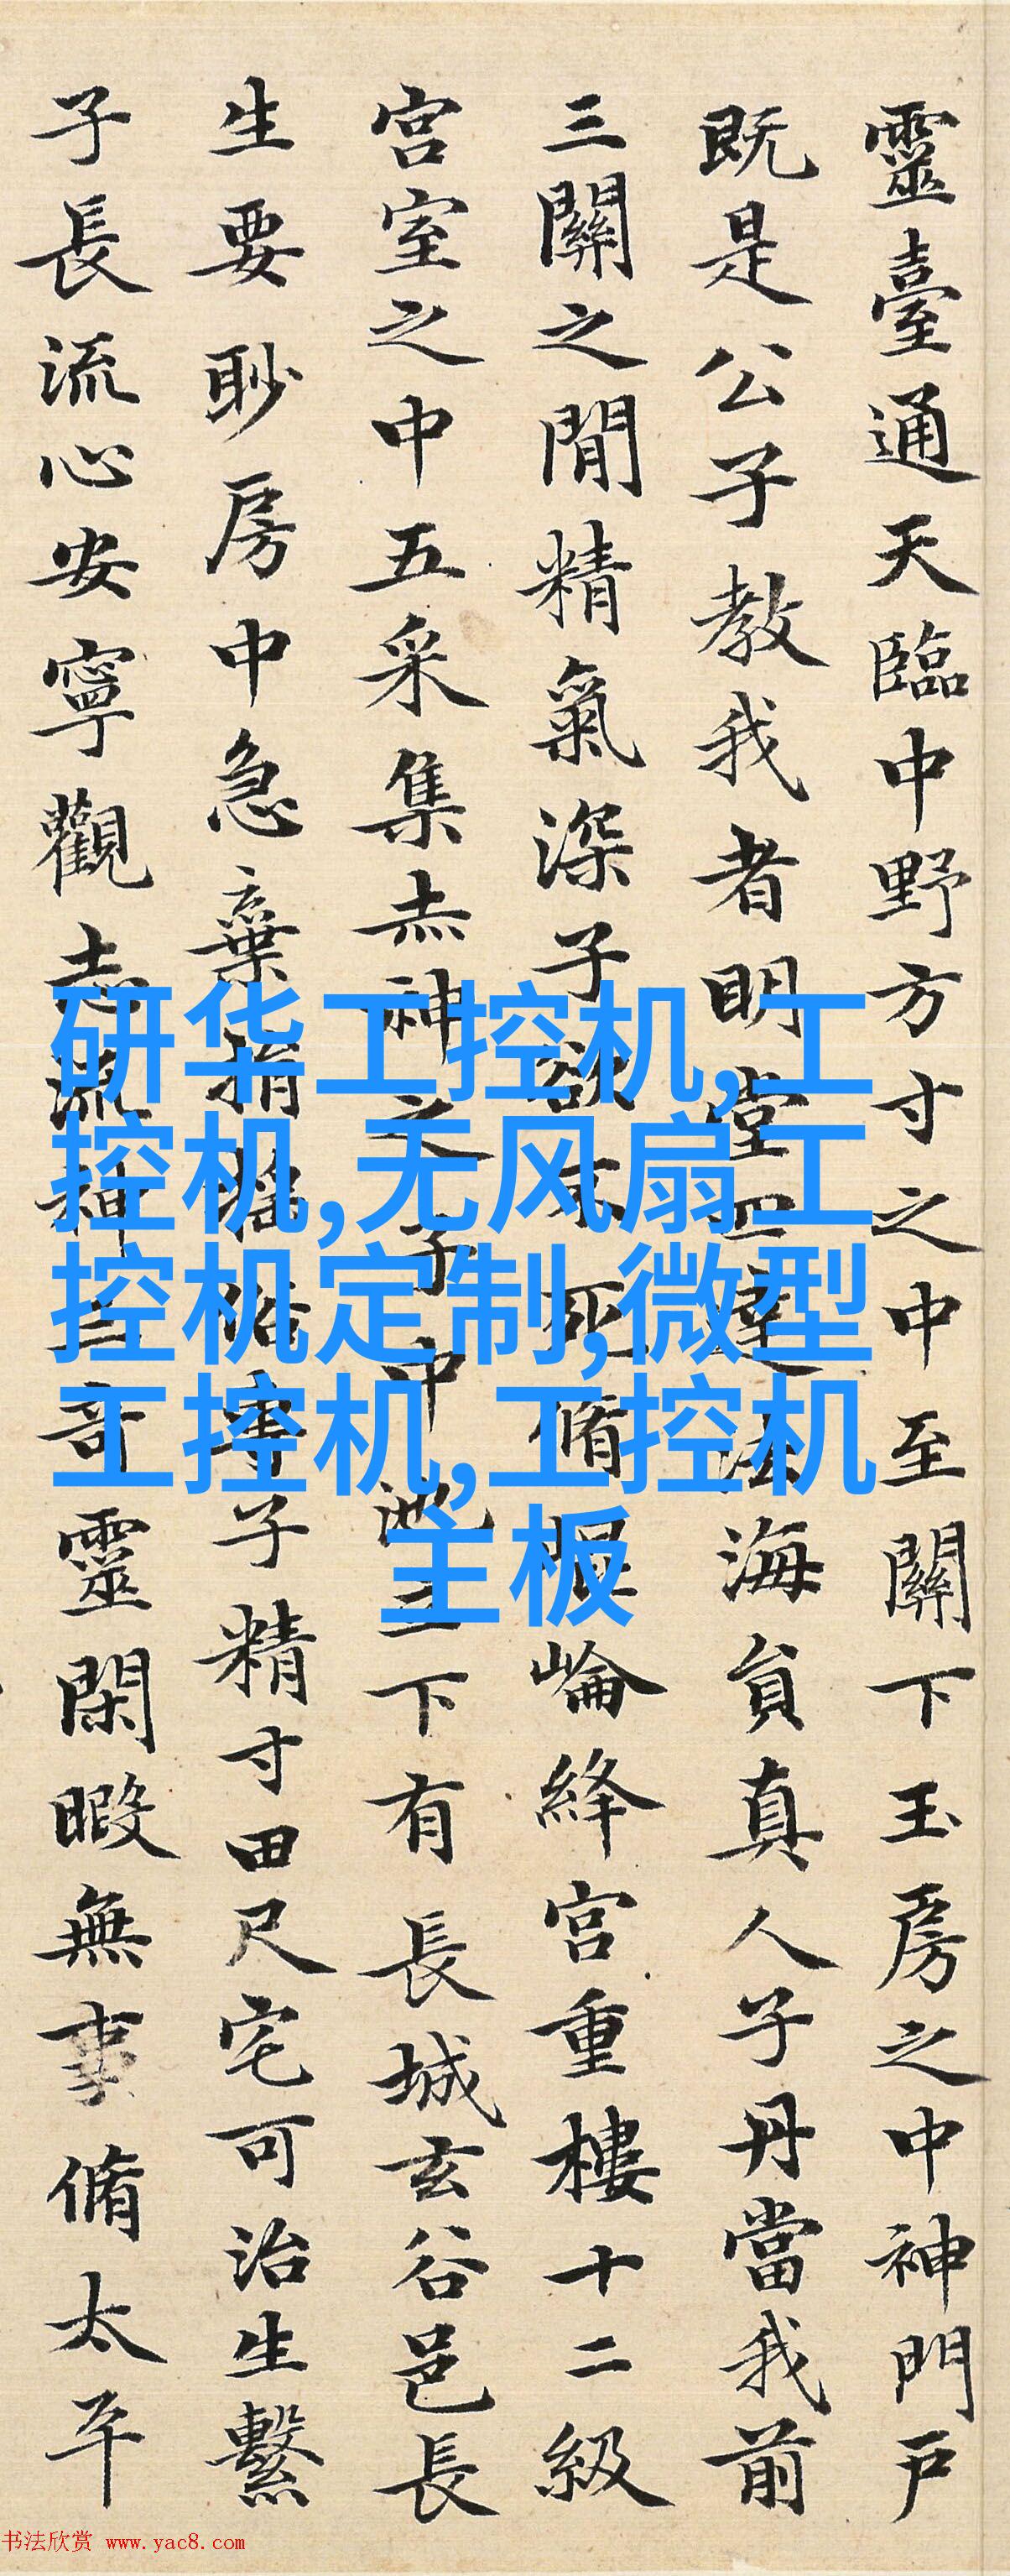 靈臺通天臨中野方寸之中至關下玉房之中神門戶
既是公子教我者明堂四達法海員真人子丹當我前
三關之閒精氣深子欲不死脩崐崘絳宮重樓十二級
宮室之中五采集赤神之子中池立下有長城玄谷邑長
生要眇房中急棄捐婬俗專子精寸田尺宅可治生繫
子長流心安寧觀志流神三奇靈閑暇無事脩太平
研华工控机,工
控机,无风扇工
控机定制,微型
工控机,工控机
主板
书法欣赏 www.yac8.com